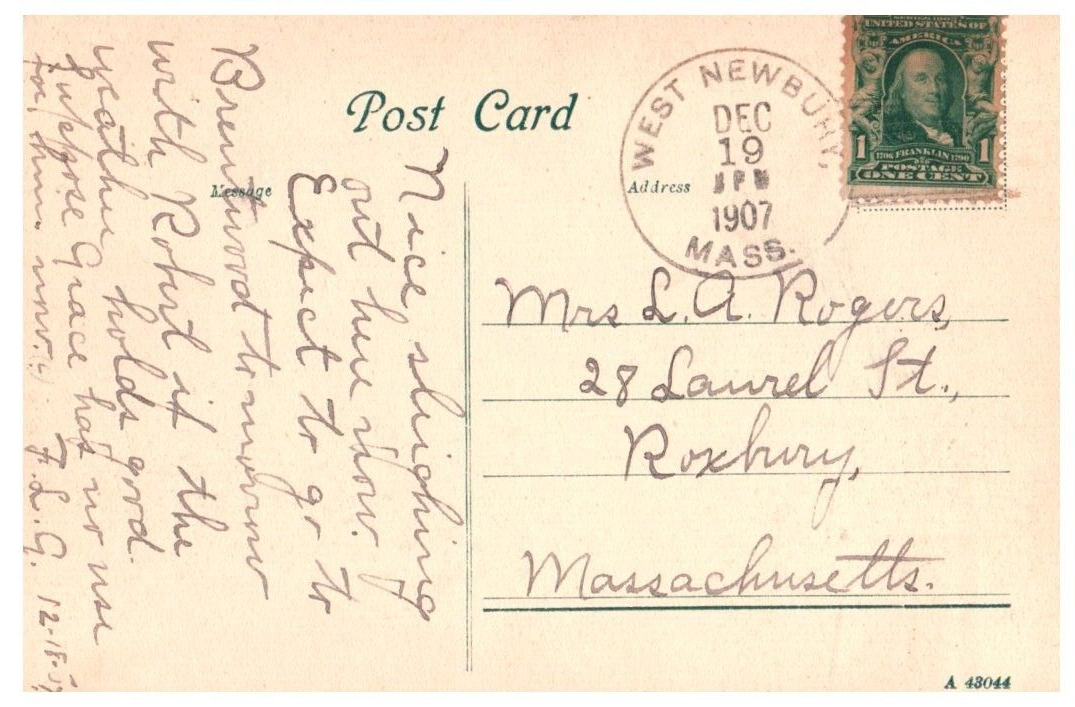 Post Card
Message
Address
WEST NEWBURY,
DEC
19
PM
1907
MASS.
SERIES 1902
UNITED STATES OF
AMERICA
1 1706 FRANKLIN 1790 1
POSTAGE
ONE CENT
Nice sleighing
out here now.
Expect to go to
Brentwood tomorrow
with Robert if the
weather holds good.
Suppose Grace has no use
for him now.
F.L.G. 12-18-07
Mrs L. A. Rogers,
28 Laurel St.,
Roxbury,
Massachusetts.
A 43044